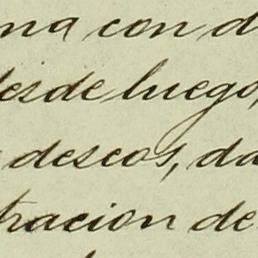 ma con d
desde luego,
deseos, da
tracion de